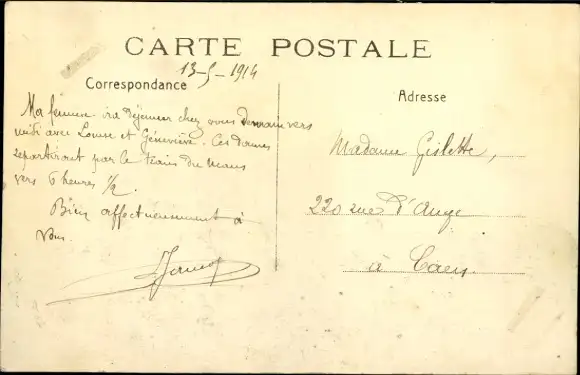 CARTE POSTALE
13-5-1914
Correspondance
Adresse
Ma femme ira déjeuner chez vous demain vers
midi avec Louise et Géneviève. Ces dames
repartiront par le train du Mans
vers 6 heures 1/2.
Bien affectueusement à
vous.
Madame Gislette,
220 rue d'Auge
à Caen